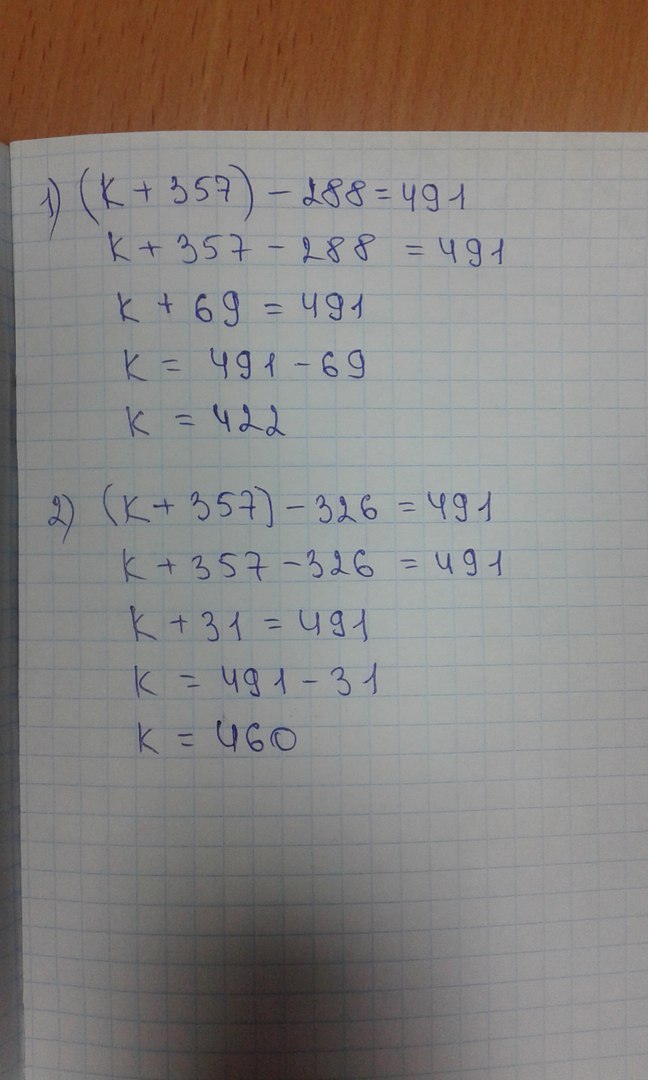 1) (K + 357) - 288 = 491
K + 357 - 288 = 491
K + 69 = 491
K = 491 - 69
K = 422
2) (K + 357) - 326 = 491
K + 357 - 326 = 491
K + 31 = 491
K = 491 - 31
K = 460